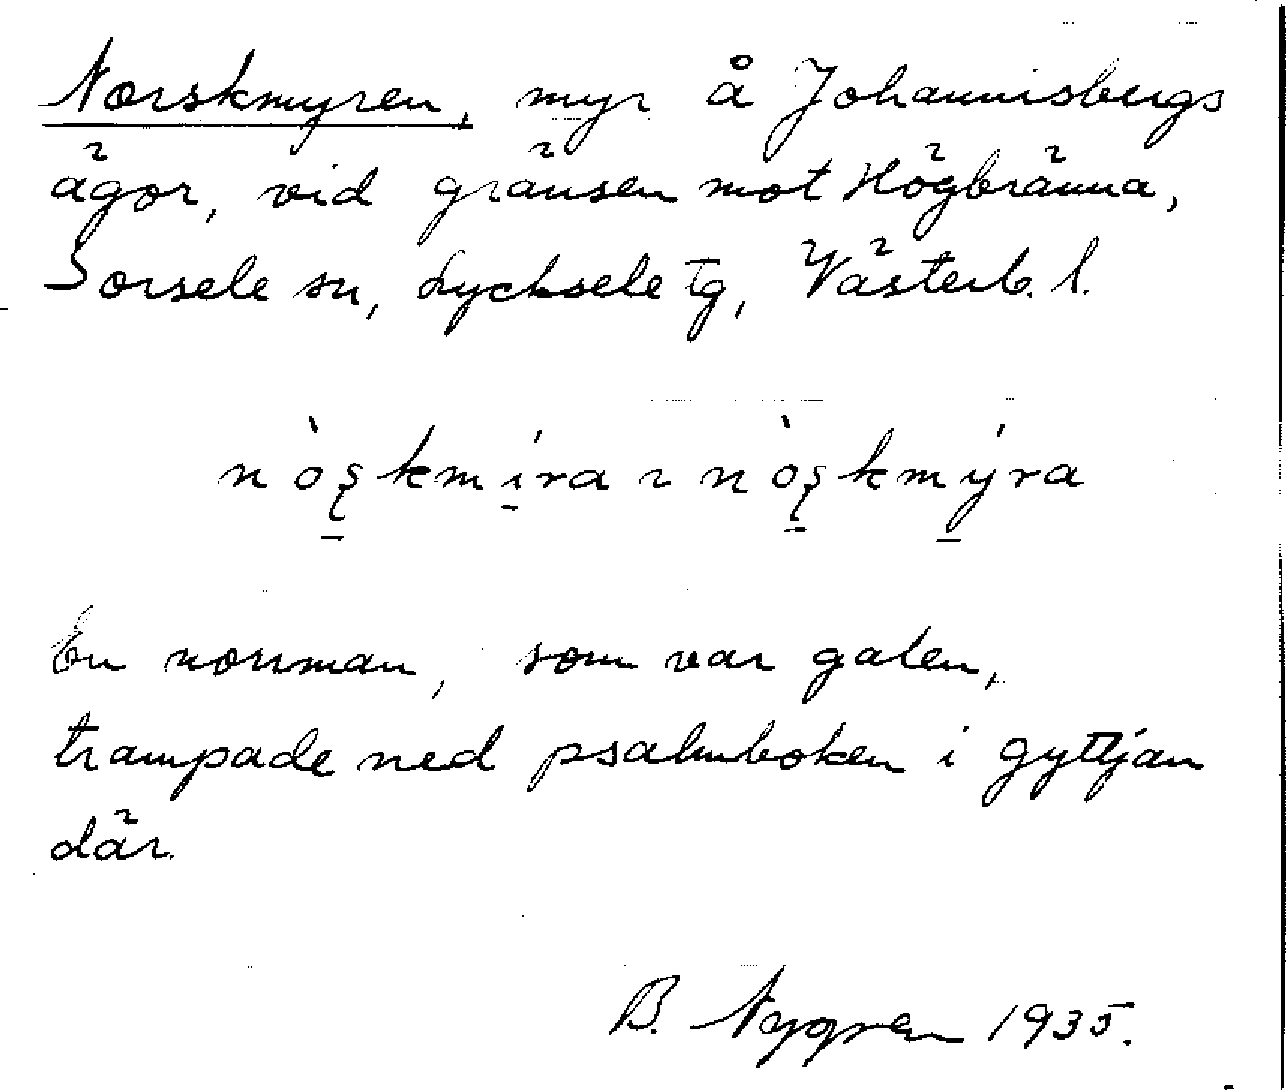 Norskmyren, myr å Johannisbergs
ägor, vid gränsen mot Högbränna,
Sorsele sn, Lycksele tg, Västerb. l.
nòʂkmíra ~ nòʂkmýra
En norrman, som var galen,
trampade ned psalmboken i gyttjan
där.
B. Nygren 1935.